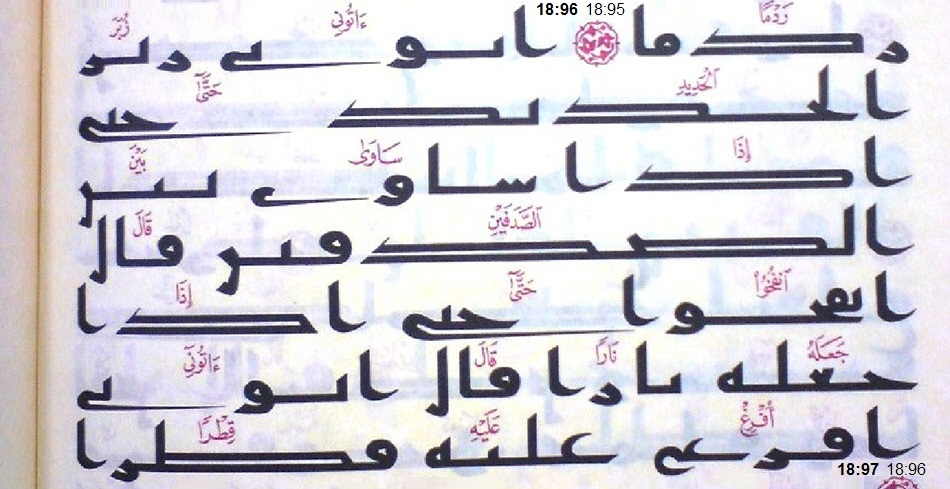 18:96 18:95
رَدْمًا ءَاتُونِي زُبَرَ
ردما اتوني زبر
ٱلْحَدِيدِ حَتَّىٰٓ
الحديد حتى
إِذَا سَاوَىٰ بَيْنَ
اذا ساوى بين
ٱلصَّدَفَيْنِ قَالَ
الصدفين قال
ٱنفُخُوا۟ حَتَّىٰٓ إِذَا
انفخوا حتى اذا
جَعَلَهُۥ نَارًا قَالَ ءَاتُونِيٓ
جعله نارا قال اتوني
أُفْرِغْ عَلَيْهِ قِطْرًا
افرغ عليه قطرا
18:97 18:96